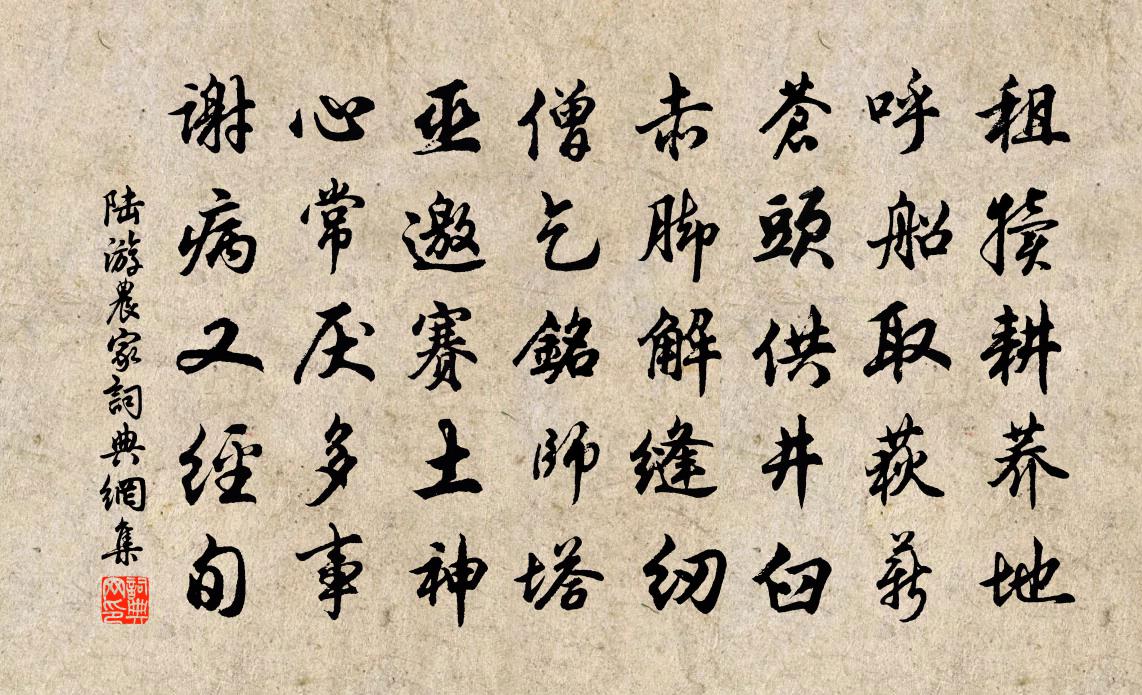 租犢耕荞地
呼船取荻薪
蒼頭供井臼
赤脚解縫纫
僧乞銘師塔
巫邀賽土神
心常厌多事
謝病又經旬
陆游農家詞典網集
詞典網印